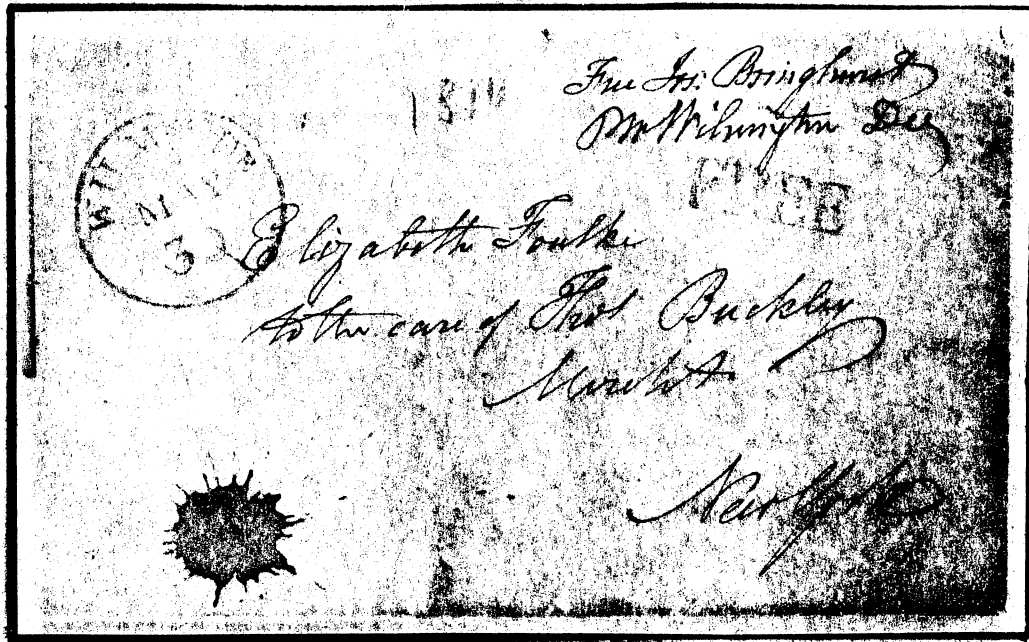 Free Jos: Bringhurst
PM Wilmington Del
FREE
MAY
30
Elizabeth Foulke
to the care of Thos Buckley
Mercht
New York